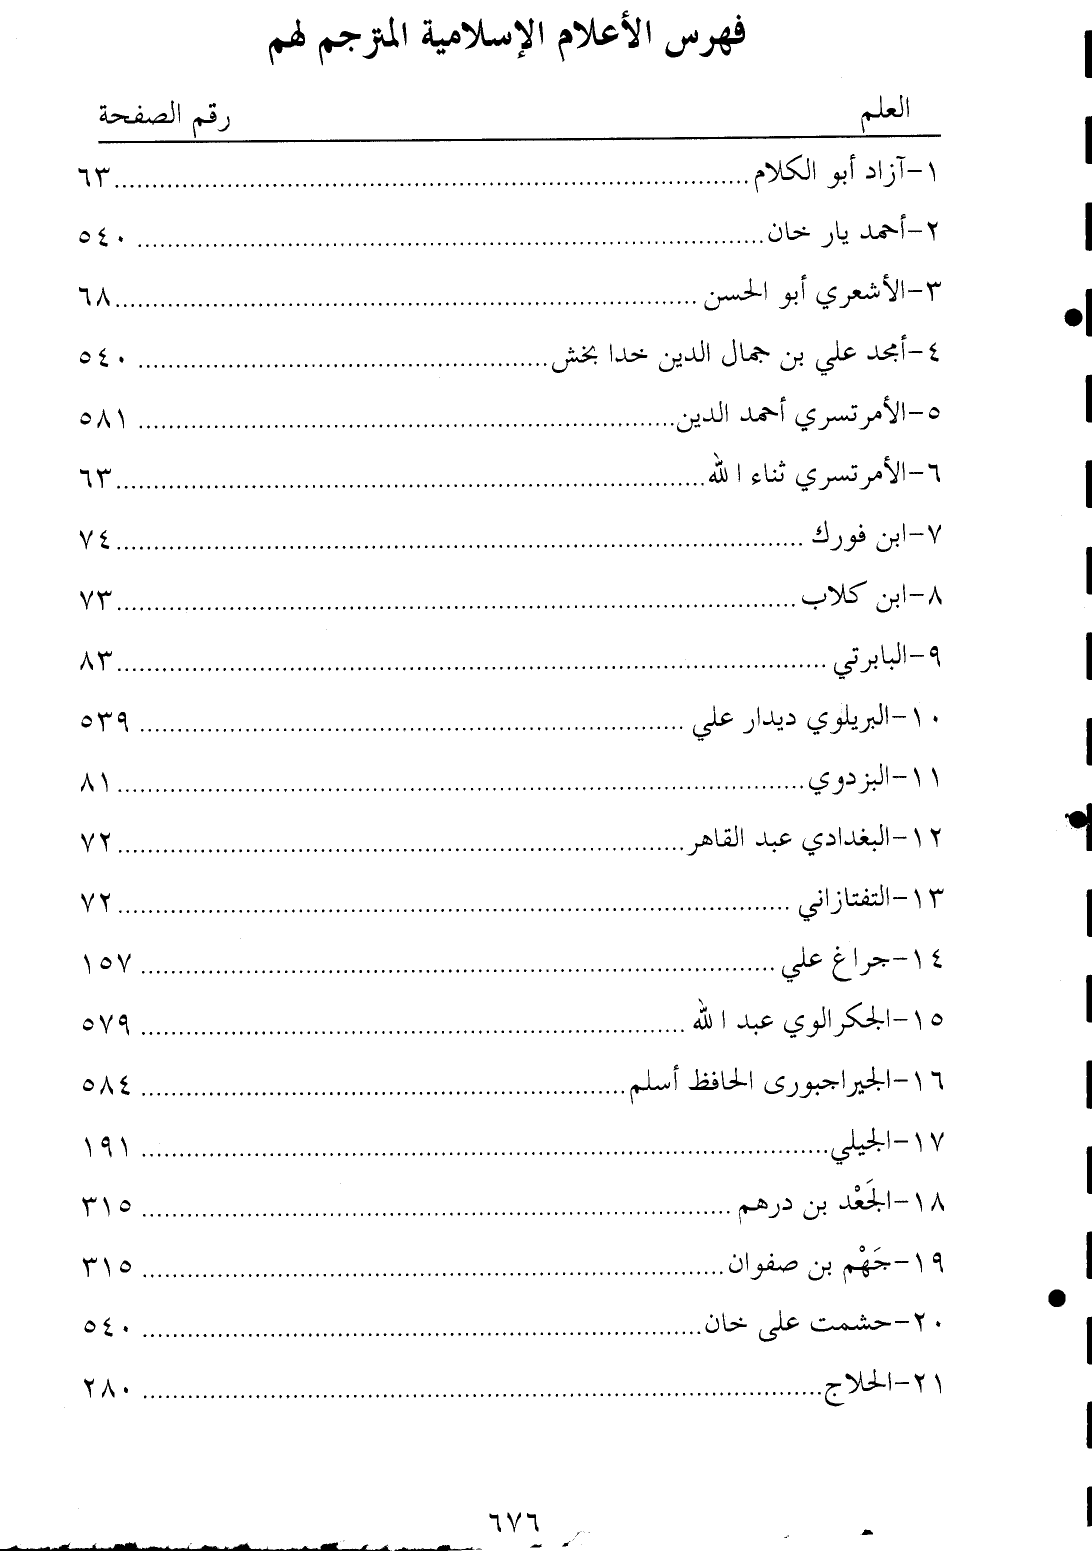 فهرس الأعلام الإسلامية المترجم لهم
العلم رقم الصفحة
١-آزاد أبو الكلام ........ ٦٣
٢-أحمد يار خان ........ ٥٤٠
٣-الأشعري أبو الحسن ........ ٦٨
٤-أمجد علي بن جمال الدين خدا بخش ........ ٥٤٠
٥-الأمرتسري أحمد الدين ........ ٥٨١
٦-الأمرتسري ثناء الله ........ ٦٣
٧-ابن فورك ........ ٧٤
٨-ابن كلاب ........ ٧٣
٩-البابرتي ........ ٨٣
١٠-البريلوي ديدار علي ........ ٥٣٩
١١-البزدوي ........ ٨١
١٢-البغدادي عبد القاهر ........ ٧٢
١٣-التفتازاني ........ ٧٢
١٤-جراغ علي ........ ١٥٧
١٥-الجكرالوي عبد الله ........ ٥٧٩
١٦-الجيراجبورى الحافظ أسلم ........ ٥٨٤
١٧-الجيلي ........ ١٩١
١٨-الجَعْد بن درهم ........ ٣١٥
١٩-جَهْم بن صفوان ........ ٣١٥
٢٠-حشمت على خان ........ ٥٤٠
٢١-الحلاج ........ ٢٨٠
٦٧٦